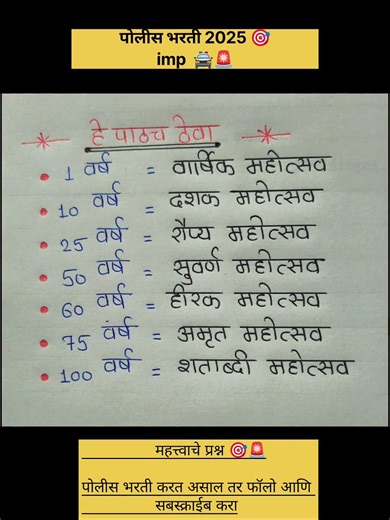 पोलीस भरती 2025 🎯
imp 🚔🚨
हे पाठच ठेवा
1 वर्ष = वार्षिक महोत्सव
10 वर्ष = दशक महोत्सव
25 वर्ष = रौप्य महोत्सव
50 वर्ष = सुवर्ण महोत्सव
60 वर्ष = हीरक महोत्सव
75 वर्ष = अमृत महोत्सव
100 वर्ष = शताब्दी महोत्सव
महत्त्वाचे प्रश्न 🎯🚨
पोलीस भरती करत असाल तर फॉलो आणि
सबस्क्राईब करा